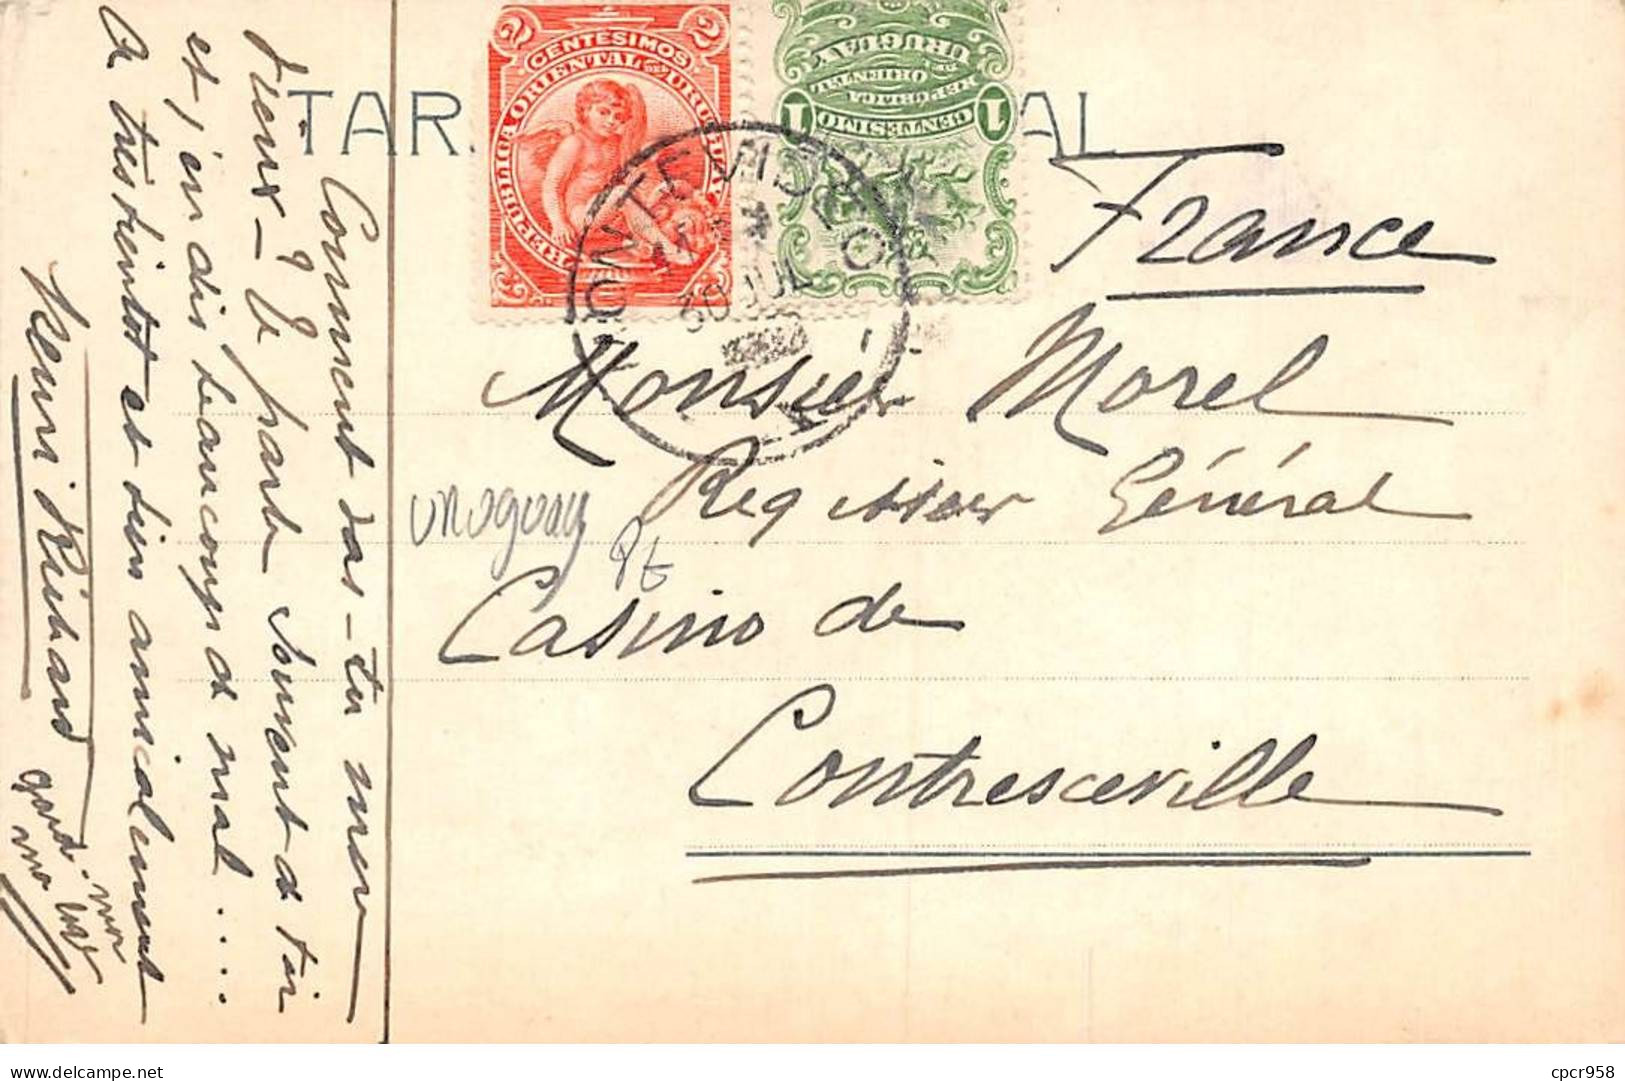 Comment vas-tu mon
vieux - Je parle souvent de toi
et j'en dis beaucoup de mal....
A très bientôt et bien amicalement
Henri Richard
TAR
AL
2 CENTESIMOS 2
REPUBLICA ORIENTAL DEL URUGUAY
URUGUAY
ORIENTAL
REPUBLICA
1 CENTESIMO 1
MONTEVIDEO
30 JUL
France
Monsieur Morel
Régisseur Général
Uruguay
Casino de
Contresceville
cpcr958